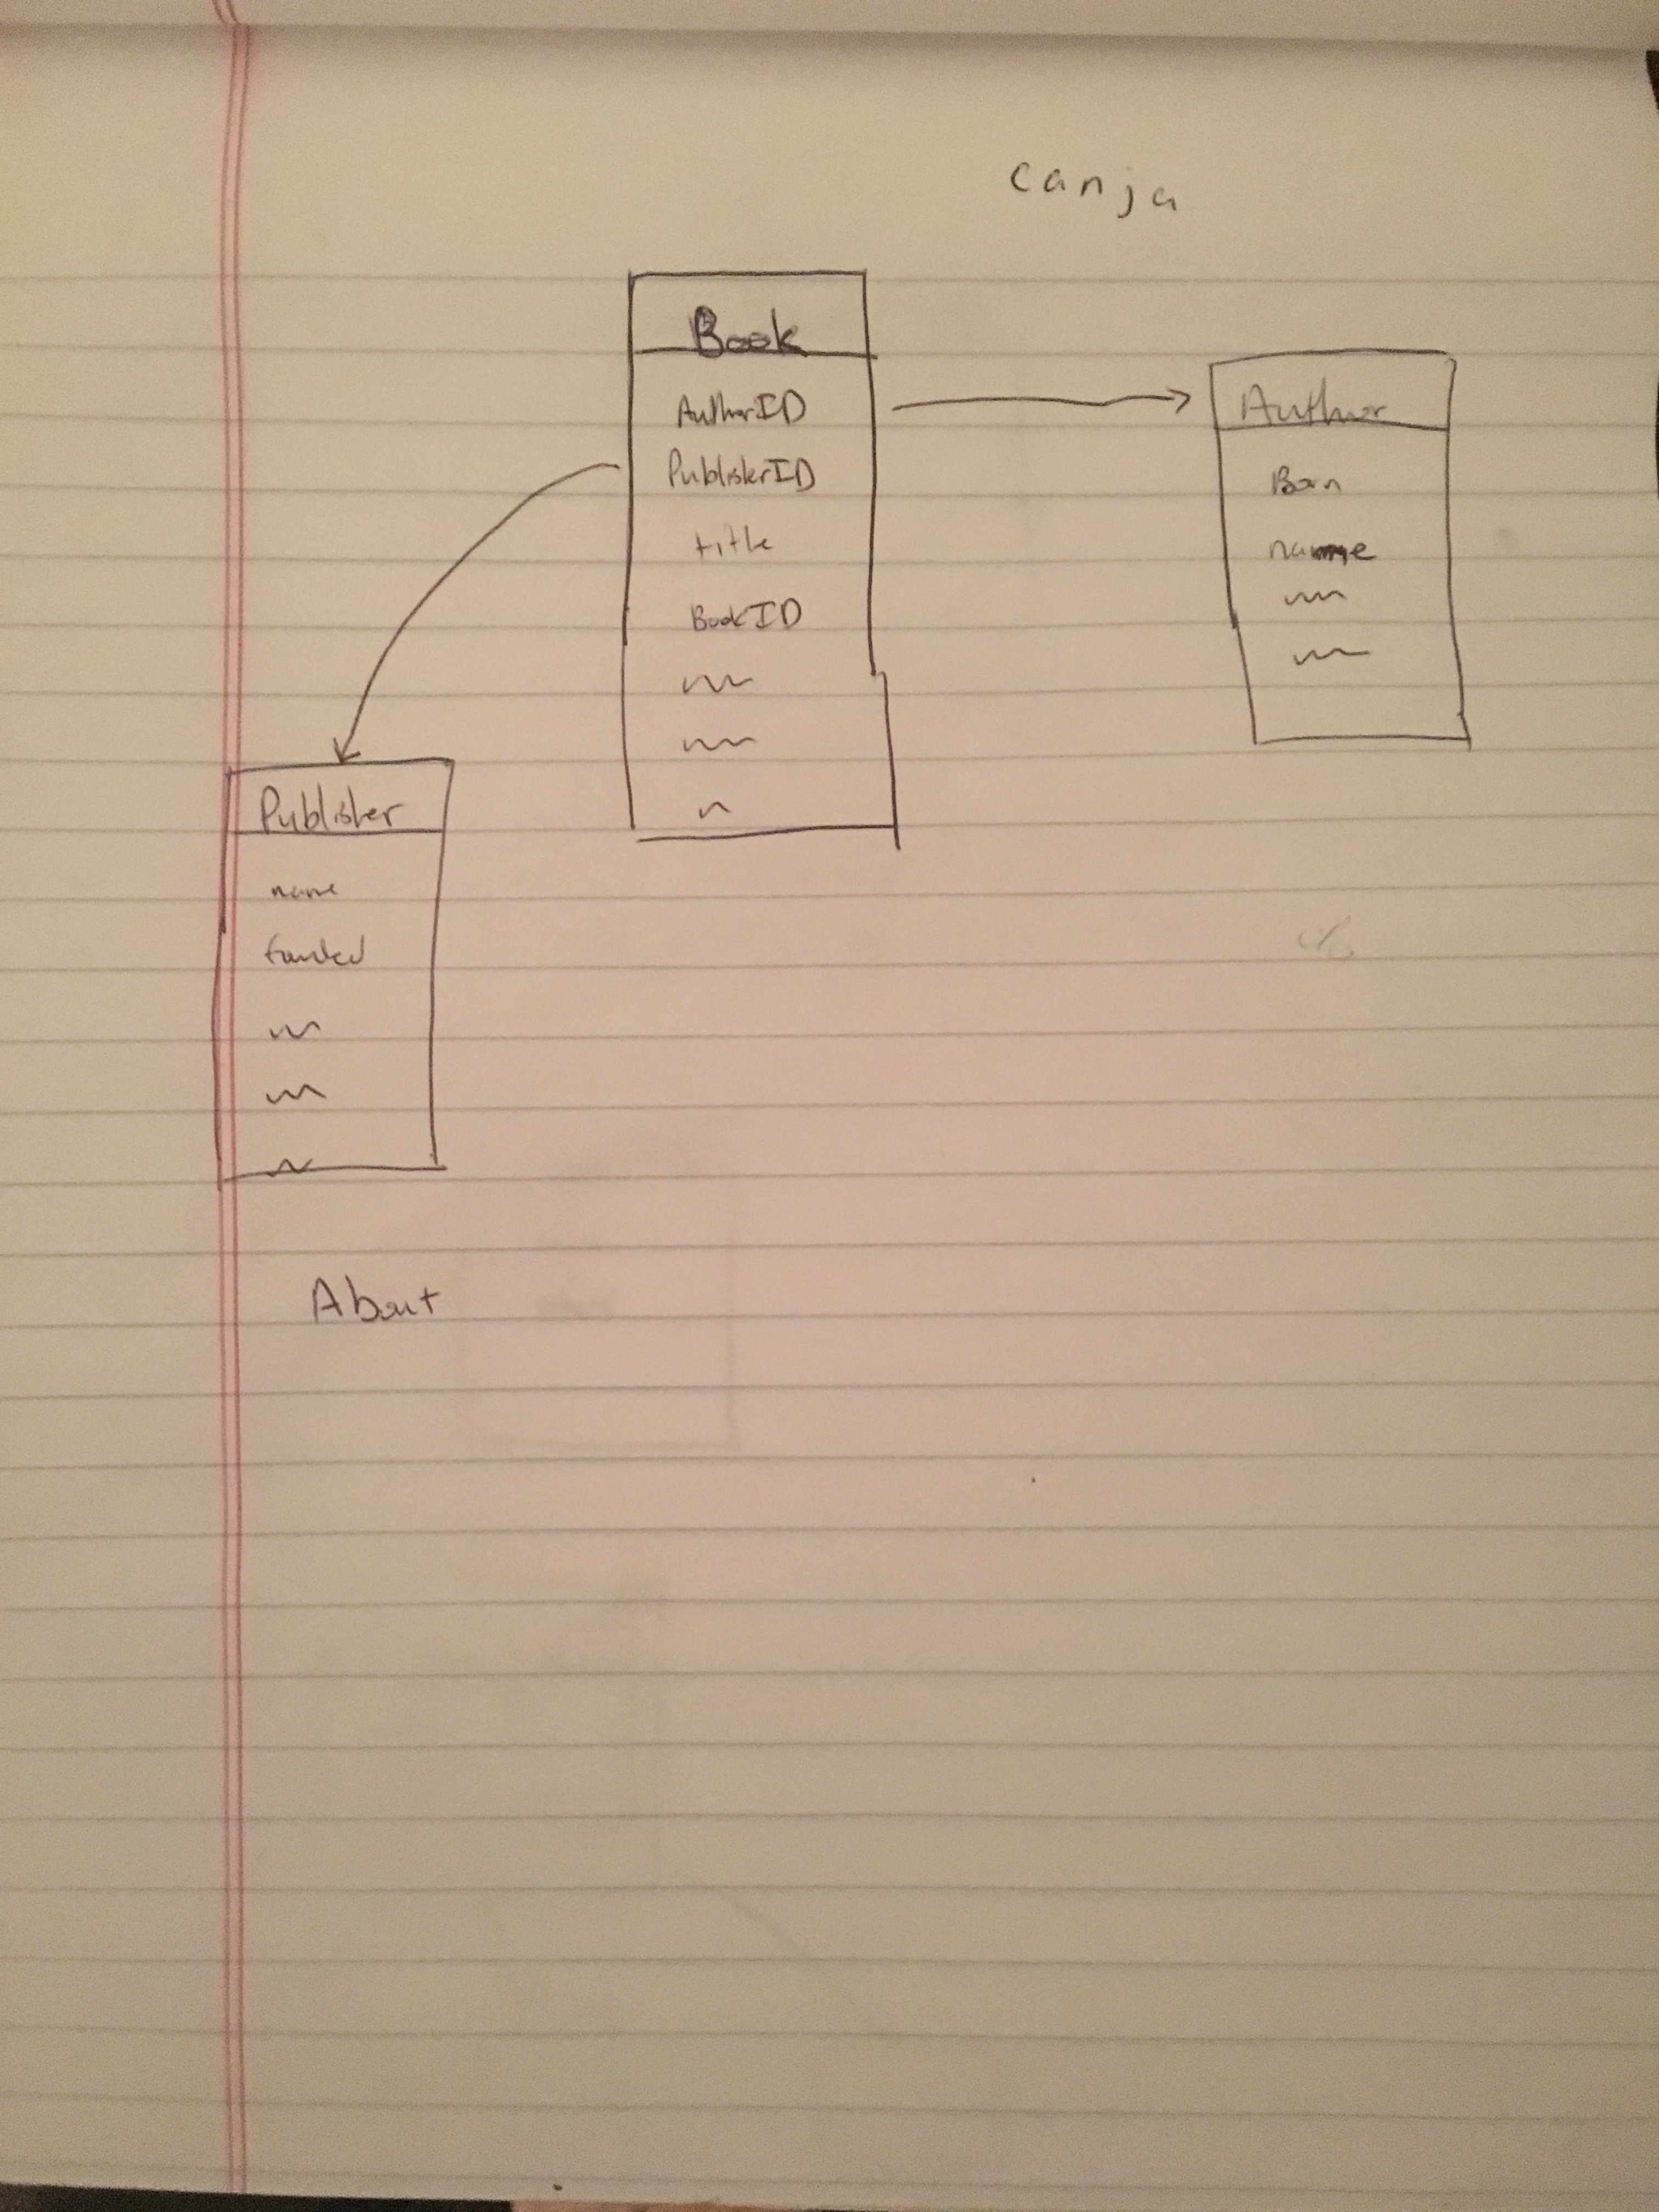 canja
Book
AuthorID
PublisherID
title
BookID
Author
Born
name
Publisher
name
founded
About